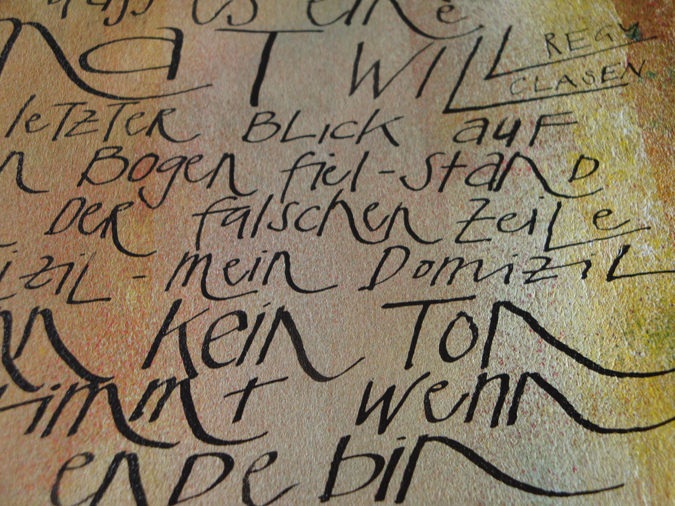 dass es eine
nat WILL REGY
CLASEN
letzter Blick auf
n Bogen fiel-stand
der falschen Zeile
izil - mein Domizil
nn kein Ton
timmt wenn
ende bin